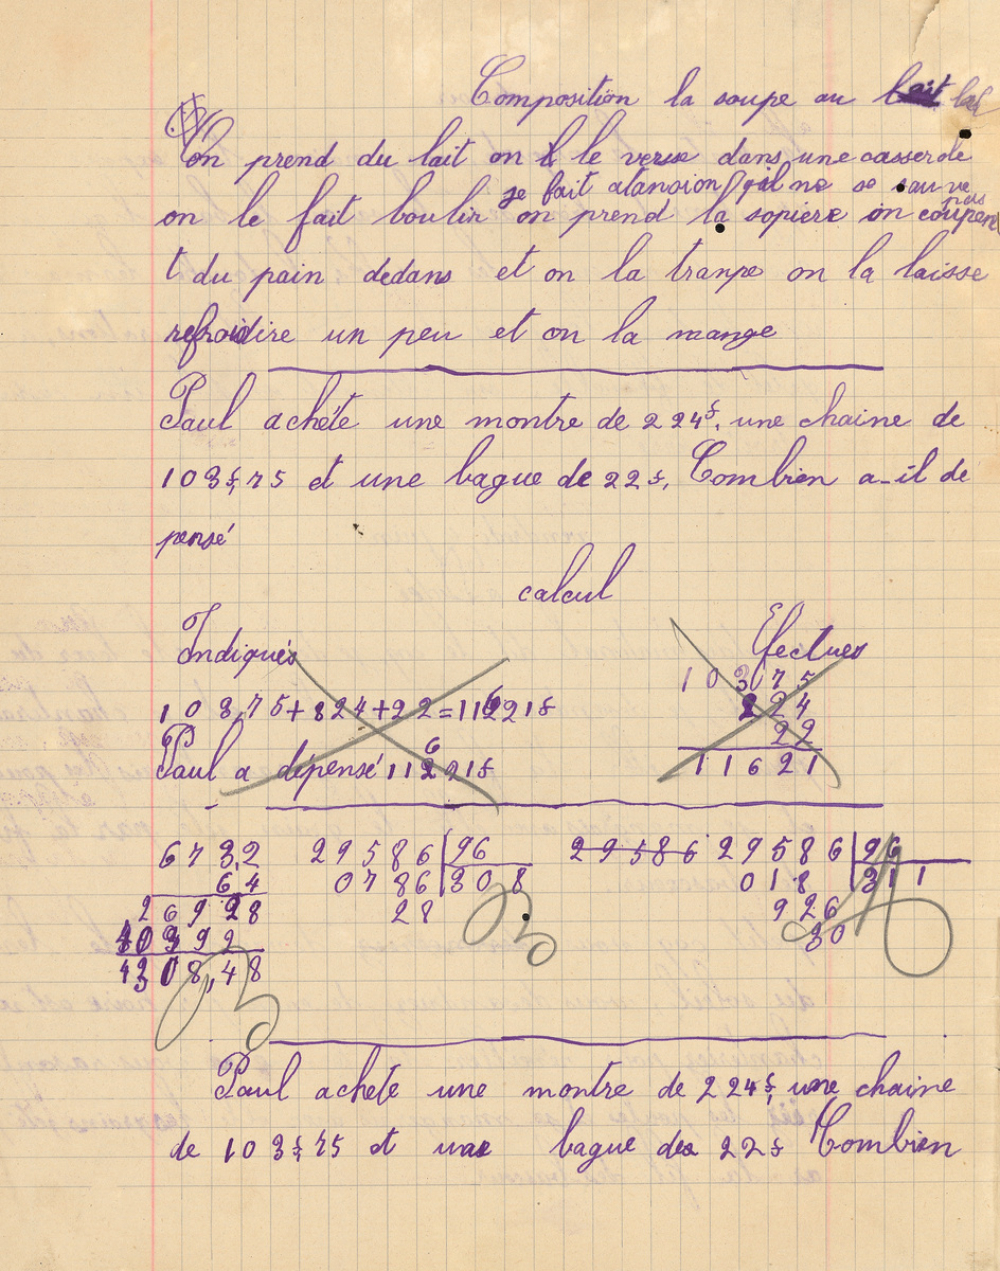 Composition la soupe au lait
On prend du lait on le verse dans une casserole
se fait atansion qil ne se sauve pas
on le fait boulir on prend la sopiere on coupent
t du pain dedans et on la tranpe on la laisse
refroidire un peu et on la mange
Paul achéte une montre de 224f, une chaine de
103f,75 et une bague de 22f, Combien a-il de
pensé
calcul
Indiqués Efectues
103,75+224+22=11621f
10375
224
22
11621
Paul a depensé 11621f
673,2
64
26928
40392
4308,48
29586 96
0786 308
28
29586 29586 96
018 311
926
30
Paul achete une montre de 224f, une chaine
de 103f75 et une bague de 22f Combien